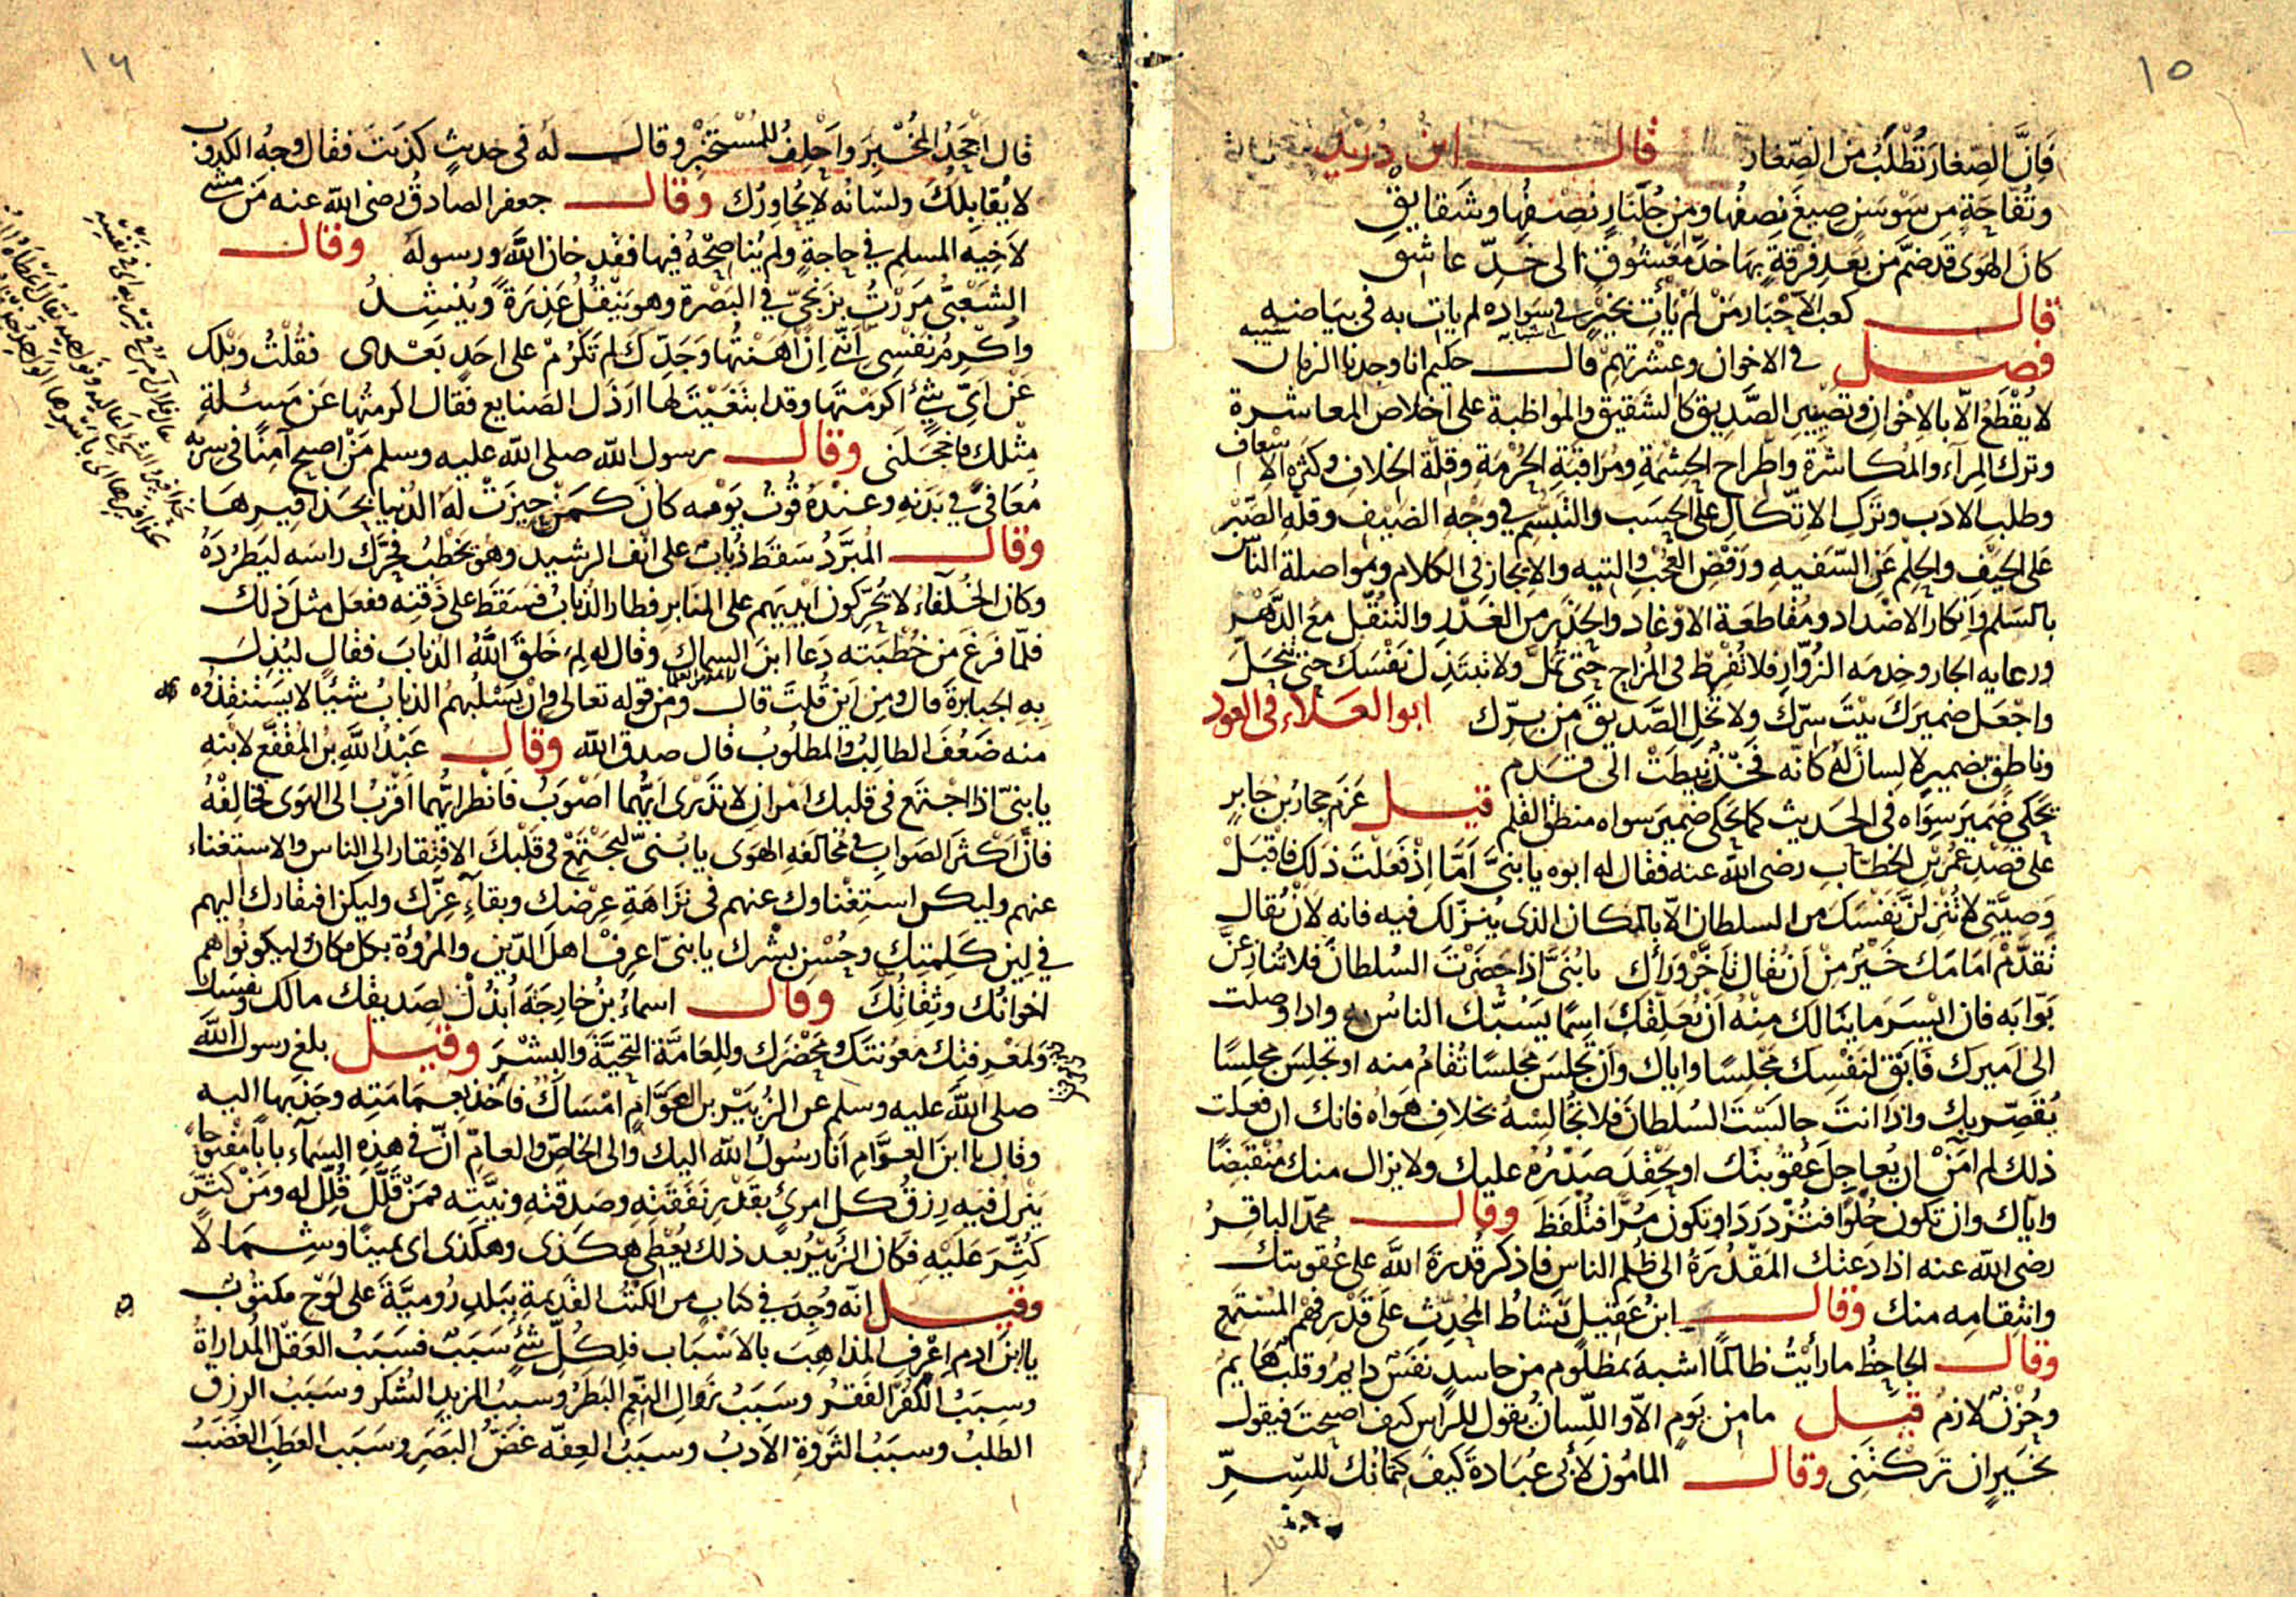 ١٥
فَانَّ الصِغارَ تُطْلَبُ مِنَ الصِّغار قال ابن دُرَيْد
وتُفّاحَةٍ من سَوْسَنٍ صِيغَ نِصفُها ومن جُلَّنَارٍ نصفُها وشَقايقِ
كانَ الهَوى قَد ضَمَّ مِن بَعْدِ فُرْقةٍ بِها خَدَّ مَعْشُوقٍ الى خَدِّ عاشقِ
قال كعبُ الاَحْبَار مَنْ لمْ يَأْتِ بخيْرٍ في سَواده لم يات به في بَياضه
فصل في الاخوان وعِشْرتِهِمْ قال حكيم انا وجدنا الزمان
لا يُقْطَعُ الّا بالاِخْوانِ وتَصْيِيرِ الصَّدِيق كالشقيق والمواظبة على اخلاص المعاشرة
وترك المِرآء والمُكاشَرَةِ واطّراح الحِشْمَةِ ومُرَاقَبَةِ الحُرْمةِ وقلّة الخلاف وكثرة الاسعاف
وطلبِ الادَب وتركِ الاتّكالِ على الحَسَب والتَبَسُّمِ في وَجْهِ الضيْفِ وقلّةِ الصَبْر
على الحَيْفِ والحِلْمِ عَنِ السَّفيهِ ورَفْضِ العُجْبِ والتيهِ والايجاز في الكلام ومواصلة الناس
بالسَلم وانكار الاضداد ومُقاطعَة الاوْغاد والحَذَرِ من الغَدْرِ والتنقّل مَعَ الدَّهْر
ورعايه الجار وخدمه الزُوّار فلا تُفْرِطْ في المُزاح حتّى تُمَلَّ ولا تَبْتَذِلْ نَفْسَك حتى
واجْعَل ضميرَكَ بَيْتَ سِرّكَ ولا تُخْلِ الصَّديقَ مِن بِرّك ابو العَلاء في العود
وناطِقٍ بضميرٍ لا لِسانَ لَهُ كانّه فَخْذٌ نِيطَتْ الى قَدَم
يَحْكي ضَميرَ سِوَاه في الحَديث كما يَحكي ضميرَ سواه منطقُ القلم قيل عَزَم حجار بن جابرٍ
على قَصْدِ عُمَر بن الخطّاب رضى الله عنه فقال له ابوه يا بنىَّ اَمّا اِذْ فَعَلْتَ ذلك فاقْبَلْ
وَصِيَّتي لا تُنْزِلَنَّ نَفْسَك من السلطان الّا بالمكان الذى يُنزّلك فيه فانه لاَنْ يُقال
تقدَّمْ اَمَامَك خَيْرٌ مِنْ اَنْ يُقال تأخَّرْ وَرَاك يا بُنَىَّ اذا حَضَرْتَ السُلطانَ فلا تُنازِعَنَّ
بَوّابَه فان ايْسَرَ ما ينالك مِنْهُ اَنْ يُعَلِّقَكَ اسمًا يَسُبُّك الناسُ به واذا وصلت
الى اَميرك فَابْقِ لنَفْسِك مَجْلِسًا واياك وأن تَجلسَ مجلسًا تُقامُ منه او تَجلسَ مجلسًا
يُقَصِّر بك واذا انتَ جالَسْتَ السُلطانَ فلا تُجالِسْهُ بخلاف هَواه فانك ان فعلت
ذلك لم آمَنْ ان يُعاجِلَ عُقوبتَك او يَحْقِدَ صَدْرُهُ عليك ولا يزال منك مُنْقَبِضًا
واياك وان تكون حُلْوًا فتُزْدَرَدَ او تكونَ مُرًّا فتُلْفَظَ وقال محمّد الباقِرُ
رضى الله عنه اذا دَعَتْك المَقْدُرَةُ الى ظُلم الناس فاذكر قُدرَةَ اللهَ على عُقوبتك
وانتِقامِه منك وقال ابنُ عَقِيل نَشاطُ المُحدِّثِ على قَدْرِ فَهم المُسْتَمع
وقال الجاحِظُ ما رأيتُ ظالمًا اشبهَ بمظلوم من حاسدٍ نفَسٌ دايمٌ وقلبٌ هايمٌ
وحُزْنٌ لازمٌ قيل ما من يَومٍ الّا واللّسانُ يقول للراس كيف اصبحتَ فيقول
بخَيرٍ ان تَرَكْتَنى وقال المامُون لأبي عُبَادةَ كيفَ كتمانك للسِّرِّ
قال
١٦
قال اَجْحَدُ المُخْبِرَ واَحْلِفُ للمُسْتَخْبِرِ وقال لَه في حَديثٍ كذَبتَ فقال وجهُ الكذوب
لا يُقابِلك ولسَانه لا يُحاوِرُك وقال جعفر الصادقُ رضى الله عنه مَن مشى
لاَخِيه المسلم في حاجةٍ ولم يُناصِحْهُ فيها فقد خان اللهَ ورسولَه وقال
الشَعْبىّ مَررْتُ بزنجىّ في البَصْرة وهو ينقُلُ عَذِرَةً ويُنشِدُ
واُكْرِمُ نفْسِى اِنّنى اِنْ اَهَنتُها وَجَدِّكَ لم تَكرُمْ على احَدٍ بَعْدى فقُلْتُ ويْلك
عَنْ اىّ شئٍ اكرَمْتَها وقد ابتَغيْتَ لها ارذَل الصَنايع فقال اكرمتُها عَن مَسئلةِ
مِثْلك فاَخجَلَنى وقال رسول الله صلى الله عليه وسلم مَنْ اصبح آمِنًا في سِرْبه
مُعَافىً في بَدنِهِ وعنْدَهُ قُوتُ يَوْمه كانَ كمَنْ حِيزَتْ لهُ الدُنيا بحَذافيرِهَا
وقال المُبَرَّدُ سَقَطَ ذُبابٌ على انف الرشيد وهو يخطُبُ فحَرَّك راسَه ليَطرُدَهُ
وكان الخُلَفَاء لا يُحرِّكون ايديهم على المنابر فطار الذُبابُ فسَقَطَ على ذَقَنه ففعل مثل ذلك
فلمّا فَرَغَ مِن خُطبَته دَعا ابنَ السماك وقال له لِمَ خَلقَ اللهُ الذُبابَ فقال ليُذِلَّ
بِهِ الجبابرةَ قال ومن اَين قُلتَ قال من قوله تعالى وان يَسْلُبهُم الذبابُ شيئًا لا يَستنقذوه
منه ضَعُفَ الطالِبُ والمطلُوبُ قال صدق الله وقال عَبْدُ اللهِ بنُ المُقفّع لابنهِ
يا بنىّ اذا اجتمَع في قلبك امْرانِ لا تَدْرى ايّهما اصوَبُ فانْظر ايّهما اقْرَبُ الى الهَوى فخالِفْهُ
فانّ اَكْثَرَ الصَوابِ في مُخالَفهِ الهَوَى يا بُنىّ ليَجْتَمِعْ في قَلْبكَ الافتِقار الى الناس والاستغناء
عنهم وليكن استِغْناوك عنهم في نَزَاهَةِ عِرْضك وبقاءِ عِزّك وليكن افتقارك اليهم
في لِين كَلِمتِك وحُسْن بِشْرك يا بنىّ اعرِفْ اهلَ الدّين والمُروُةِ بكلّ مكان ليكونوا هم
اخوانُك وثِقاتُكَ وقال اسماءُ بنُ خارِجَةَ اُبْذُلْ لصَديقك مالك ونفسَك
ولمَعْرفتك معونتَك ومَحْضَرك وللعامّةِ التحيَّةَ والبِشْرَ وقيل بلغ رسول الله
صلى الله عليه وسلم عن الزُبَيْر بن العَوّام امْسَاكٌ فاخَذ بعِمَامَتِه وجَذبَها اليه
وقال يا ابنَ العَوّام اَنا رسُولُ الله اليك والى الخاصّ والعامّ انّ في هذهِ السَمآء بابًا مفتوحا
ينزلُ فيه رِزقُ كل امرئٍ بقَدْر نَفَقتِهِ وصَدقتهِ ونيَّته فمَنْ قَلَّلَ قُلِّلَ له ومَن كثَّر
كُثِّرَ عَلَيْهِ فكانَ الزُبَيْر بعد ذلك يُعْطى هكَذى وهكذى اى يمينًا وشمَالا
وقيل انّه وُجِدَ في كتابٍ من الكُتُب القديمة بِبَلدِ رُوميَّةَ على لَوْح مكتوُب
يا ابنَ ادم اعْرِف المذاهِبَ بالاَسْبَاب فلِكُلِّ شئٍ سَبَبٌ فسَبَبُ العَقل المُداراةُ
وسبَبُ الكُفْر الفَقْرُ وسَبَبُ زَوالِ النِعَمِ البَطَرُ وسببُ المزيد الشُكر وسَبَبُ الرزق
الطلبُ وسبَبُ الثَرْوةِ الاَدبُ وسبَبُ العِفّه غَضُّ البَصَر وسَبَب العَطَبِ الغَضَبُ